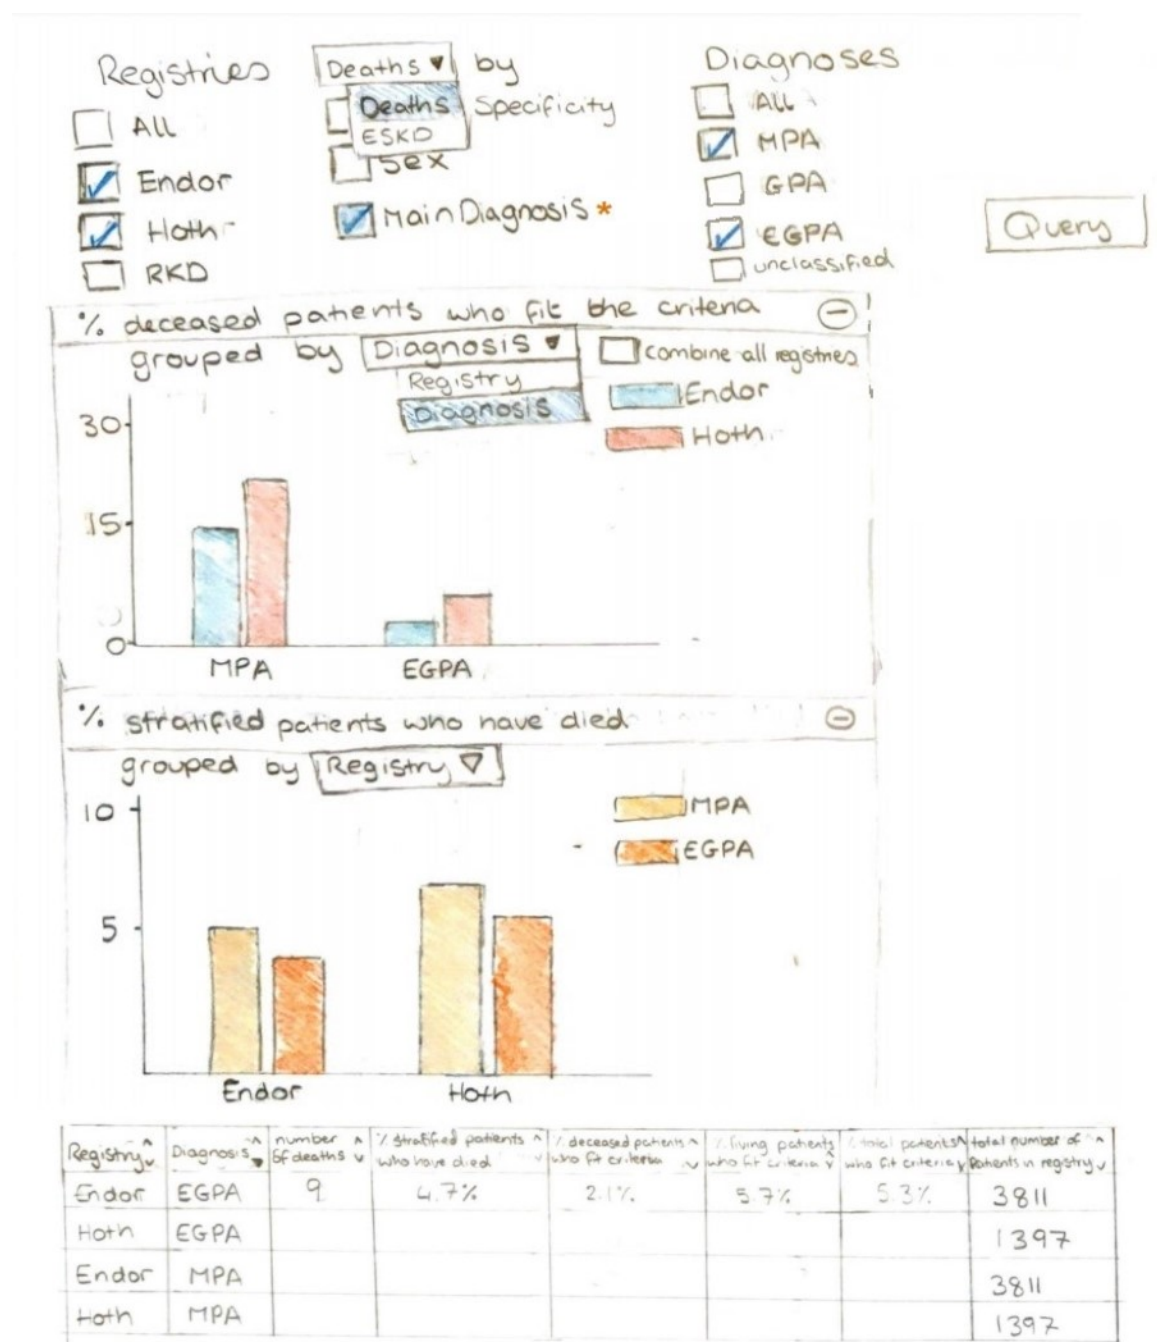 Registries
ALL
Endor
Hoth
RKD
Deaths ▼ by
Deaths
ESKD
Specificity
Sex
Main Diagnosis *
Diagnoses
ALL
MPA
GPA
EGPA
unclassified
Query
% deceased patients who fit the criteria
grouped by Diagnosis ▼
Registry
Diagnosis
combine all registries
Endor
Hoth
30
15
0
MPA EGPA
% stratified patients who have died
grouped by Registry ▽
MPA
EGPA
10
5
Endor Hoth
Registry Diagnosis number of deaths % stratified patients who have died % deceased patients who fit criteria % living patients who fit criteria % total patients who fit criteria total number of patients in registry
Endor EGPA 9 4.7% 2.1% 5.7% 5.3% 3811
Hoth EGPA 1397
Endor MPA 3811
Hoth MPA 1397